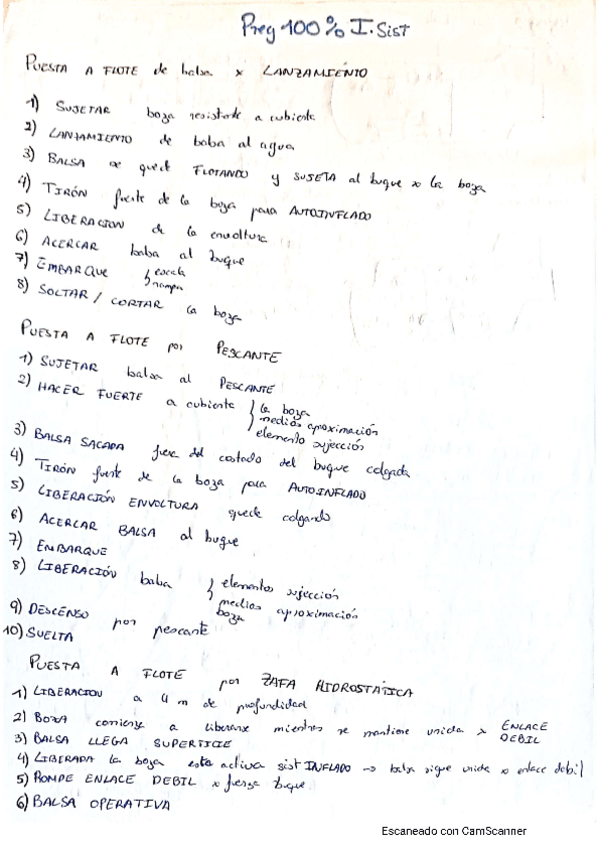 Preg 100% I. Sist
PUESTA A FLOTE de balsa x LANZAMIENTO
1) SUJETAR boza resistente a cubierta
2) LANZAMIENTO de balsa al agua
3) BALSA quede FLOTANDO y SUJETA al buque x la boza
4) TIRÓN fuerte de la boza para AUTOINFLADO
5) LIBERACION de la envoltura
6) ACERCAR balsa al buque
7) EMBARQUE { escala
rampa
8) SOLTAR / CORTAR la boza
PUESTA A FLOTE por PESCANTE
1) SUJETAR balsa al PESCANTE
2) HACER FUERTE a cubierta } la boza
medios aproximación
elemento sujección
3) BALSA SACADA fuera del costado del buque colgada
4) TIRÓN fuerte de la boza para AUTOINFLADO
5) LIBERACIÓN ENVOLTURA quede colgando
6) ACERCAR BALSA al buque
7) EMBARQUE
8) LIBERACIÓN balsa } elementos sujección
medios aproximación
boza
9) DESCENSO por pescante
10) SUELTA
PUESTA A FLOTE por ZAFA HIDROSTÁTICA
1) LIBERACION a 4 m de profundidad
2) BOZA comienza a liberarse mientras se mantiene unida x ENLACE
DEBIL
3) BALSA LLEGA SUPERFICIE
4) LIBERADA la boza esta activa sist INFLADO → balsa sigue unida x enlace debil
5) ROMPE ENLACE DEBIL x fuerza buque
6) BALSA OPERATIVA
Escaneado con CamScanner